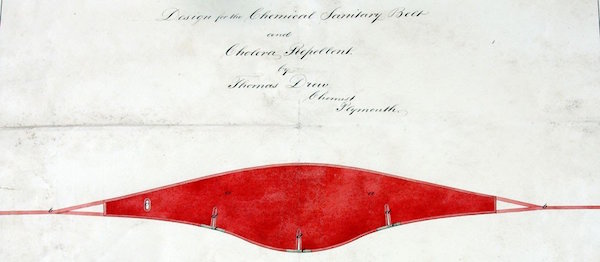 Design for the Chemical Sanitary Belt
and
Cholera Repellent
by
Thomas Drew
Chemist
Plymouth.
a a
b b